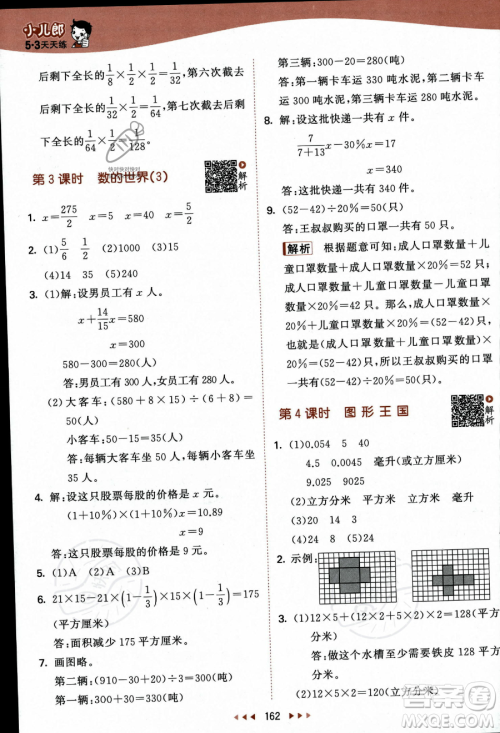 小儿郎
5·3天天练
后剩下全长的1/8×1/2×1/2=1/32,第六次截去
后剩下全长的1/32×1/2=1/64,第七次截去后剩
下全长的1/64×1/2=1/128。
第3课时 数的世界(3)
解析
1. x=275/2 x=5 x=9
2. (1)5/6 1/2 (2)120 (3)9
(4)14 (5)35
3. (1)解:设男员工有 x 人。
x+14/15x=580
x=300
580-300=280(人)
答:男员工有 300 人,女员工有 280 人。
(2)大客车:(900+300)÷(6+8)×6=540(人)
小客车:(900+300)÷(6+8)×8-300=660(人)
4. 解:设这只股票每股的价格是 x 元。
(1+10%)×(1+10%)x=24.2
x=20
答:这只股票每股的价格是 20 元。
5. (1)A (2)A (3)B
6. 21×15-21×(1-1/3)×15×(1-1/3)=175
(平方厘米)
答:面积减少 175 平方厘米。
7. 画图略。
第二辆:(910-30+20)÷3=300(吨)
第一辆:300+30=330(吨)
第三辆:300-20=280(吨)
答:第一辆卡车运 330 吨水泥,第二辆卡车运
8. 解:设这批快递一共有 x 件。
7/(7+13)x-30%x=17
x=340
答:这批快递一共有 340 件。
解析
9. (52-42)÷20%=50(只)
答:王叔叔购买的口罩一共有 50 只。
解析 根据题意可知:成人口罩数量+儿
童口罩数量+成人口罩数量×20%=52 只;成
人口罩数量+儿童口罩数量+儿童口罩数
量×20%=42 只。那么,成人口罩数量×
20%+儿童口罩数量×20%=(52-42)只,
也就是(成人口罩数量+儿童口罩数量)×
20%=(52-42)只。所以,王叔叔购买的口罩
一共有(52-42)÷20%=50(只)。
第4课时 图形王国
解析
1. (1)0.054 5 40
4.5 0.0045 毫升(或立方厘米)
(2)立方分米 平方米 立方米 毫升
(3)120 9 24 (4)9025 9.025
2. 示例:
3. (1)12×5+(12×2+5×2)×2=128(平方
分米)
答:做这个水槽至少需要铁皮 128 平方分米。
(2)12×5×2=120(立方分米)
162